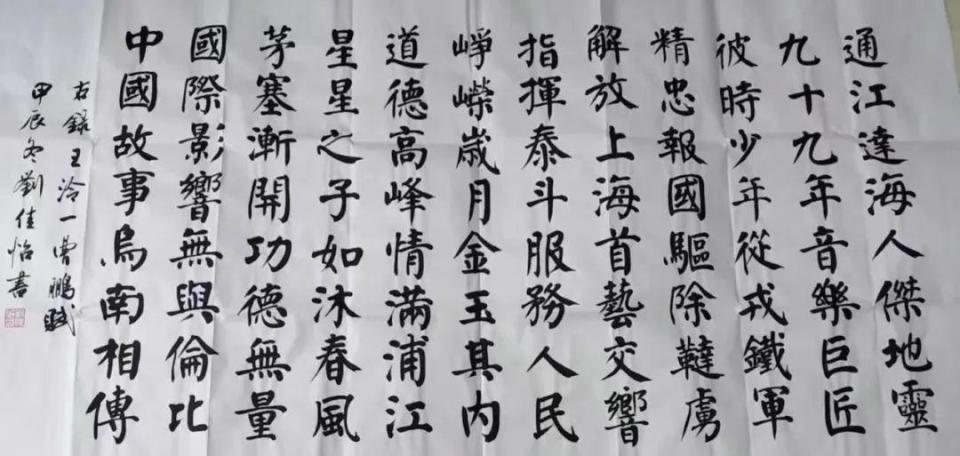 通江達海人傑地靈
九十九年音樂巨匠
彼時少年從戎鐵軍
精忠報國驅除韃虜
解放上海首藝交響
指揮泰斗服務人民
崢嶸歲月金玉其內
道德高峰情滿浦江
星星之子如沐春風
茅塞漸開功德無量
國際影響無與倫比
中國故事烏南相傳
右錄王泠一曹鵬賦
甲辰冬劉佳怡書